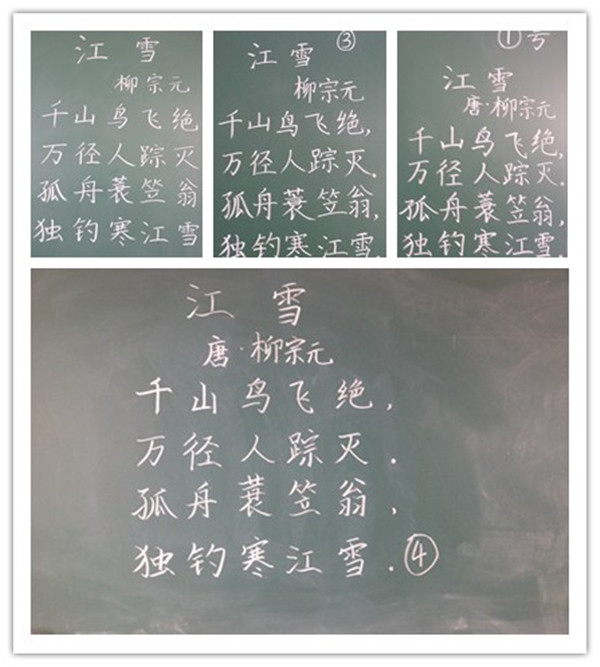 江雪
柳宗元
千山鸟飞绝
万径人踪灭
孤舟蓑笠翁
独钓寒江雪
③
江雪
柳宗元
千山鸟飞绝，
万径人踪灭.
孤舟蓑笠翁，
独钓寒江雪.
①号
江雪
唐·柳宗元
千山鸟飞绝，
万径人踪灭.
孤舟蓑笠翁，
独钓寒江雪.
江雪
唐·柳宗元
千山鸟飞绝，
万径人踪灭.
孤舟蓑笠翁，
独钓寒江雪.④